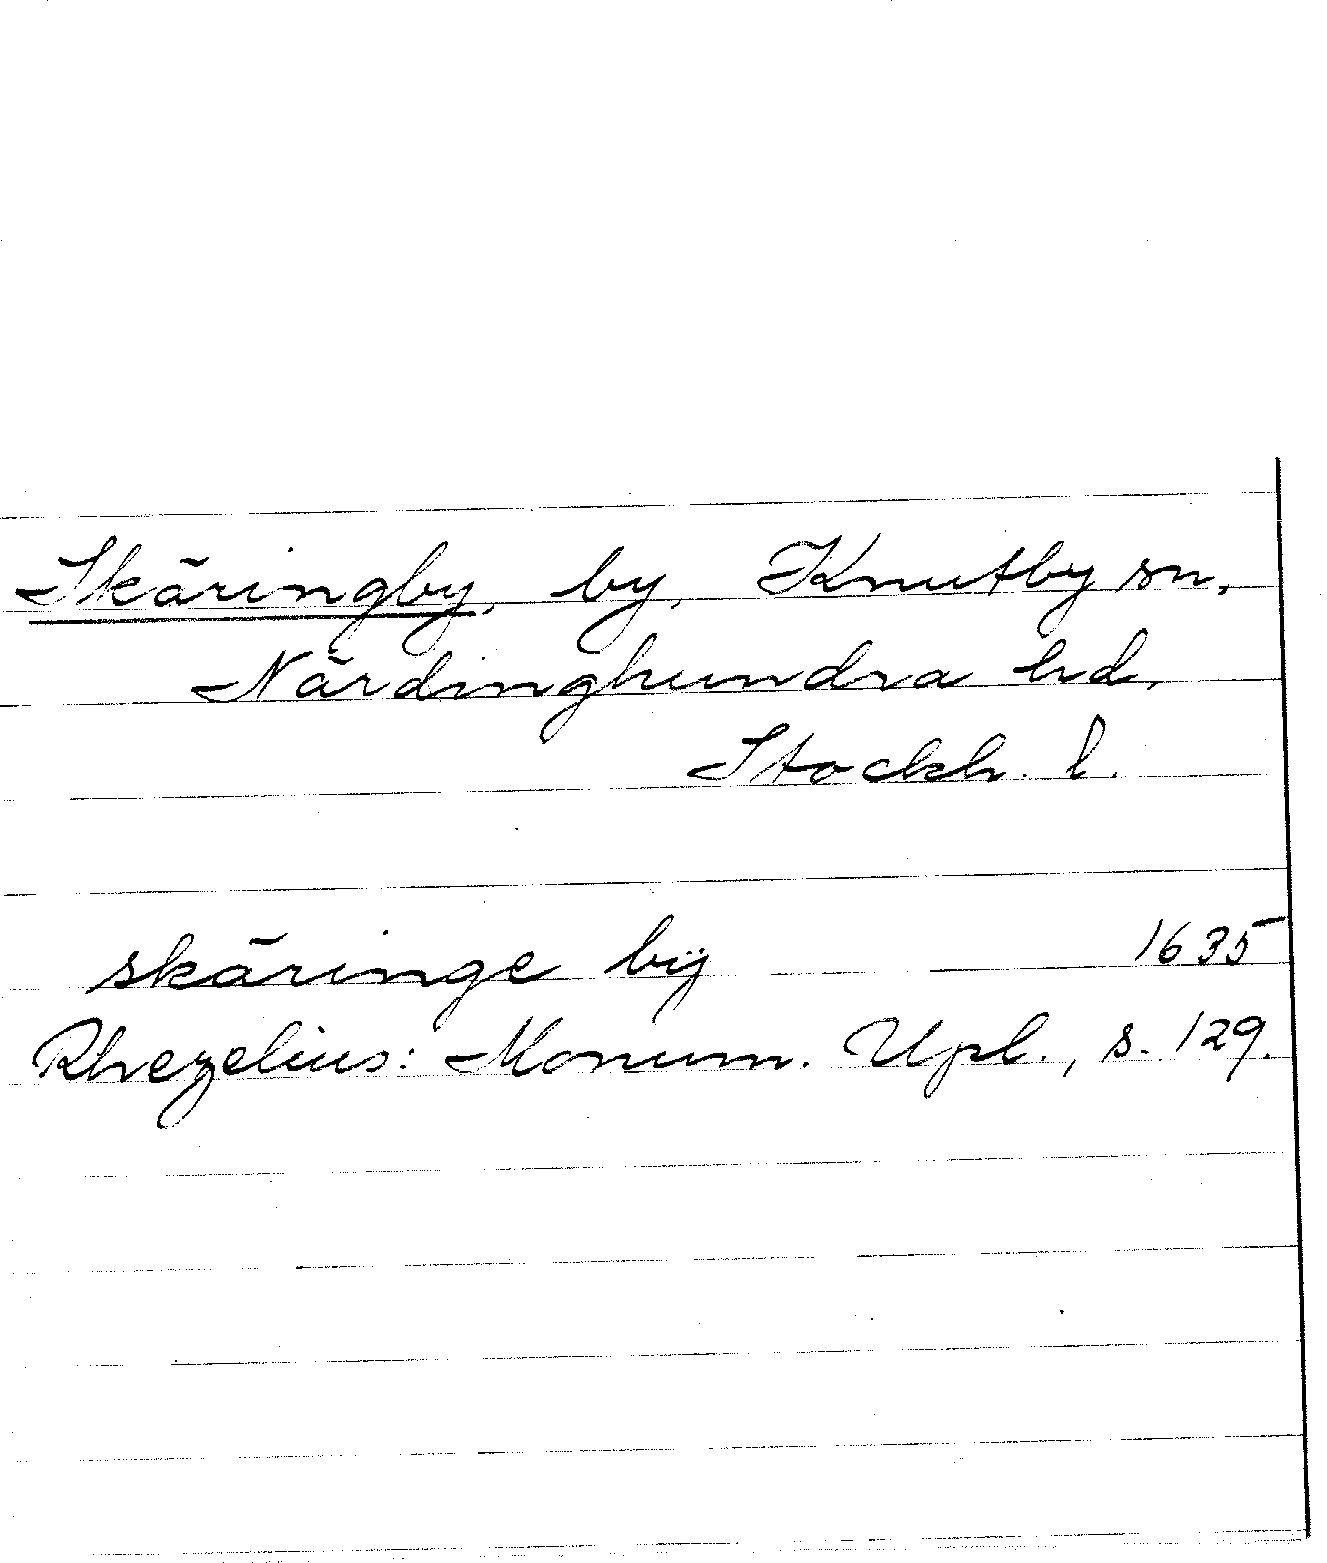 Skäringby, by, Knutby sn,
Närdinghundra hd,
Stockh. l.
skäringe bÿ 1635
Rhezelius: Monum. Upl., s. 129.